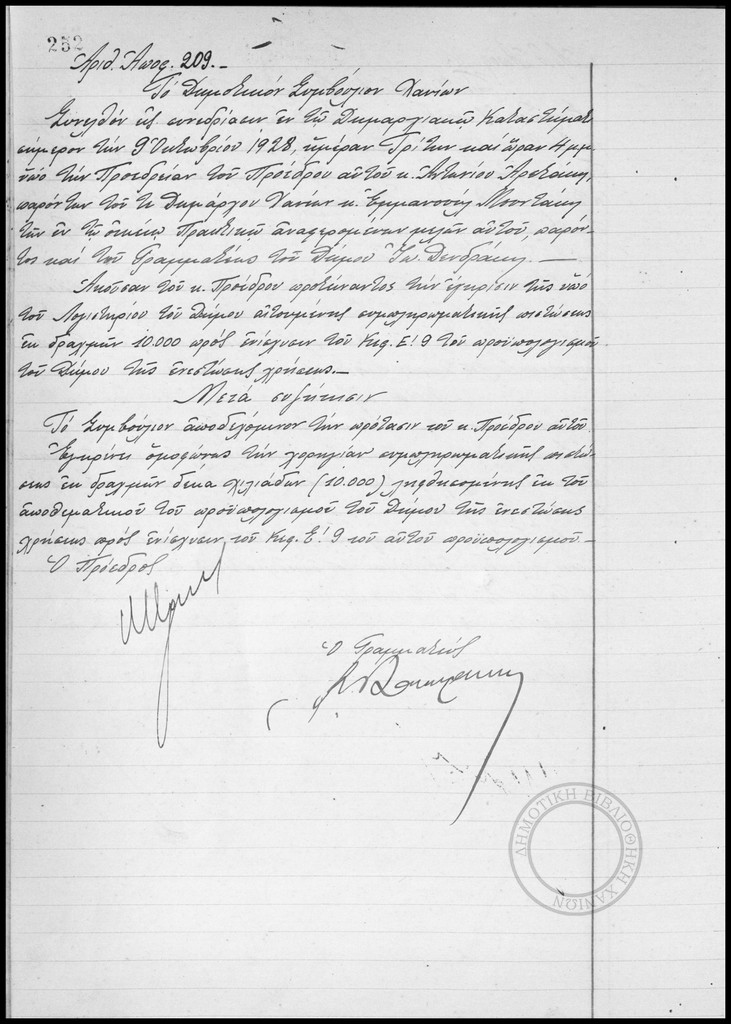 252
Ἀριθ. Ἀποφ. 209.-
Τό Δημοτικόν Συμβούλιον Χανίων
Συνελθόν εἰς συνεδρίασιν ἐν τῷ Δημαρχιακῷ Καταστήματι
σήμερον τήν 9 Ὀκτωβρίου 1928, ἡμέραν Τρίτην καί ὥραν 4 μμ
ὑπό τήν Προεδρείαν τοῦ Προέδρου αὐτοῦ κ. Ἀντωνίου
παρόντων τοῦ τε Δημάρχου Χανίων κ. Ἐμμανουήλ Μουντάκη
τῶν ἐν τῷ οἰκείῳ Πρακτικῷ ἀναφερομένων μελῶν αὐτοῦ, παρόν-
τος καί τοῦ Γραμματέως τοῦ Δήμου Ἰω. Δενδράκη.-
Ἀκοῦσαν τοῦ κ. Προέδρου προτείναντος τήν ἔγκρισιν τῆς ὑπό
τοῦ Λογιστηρίου τοῦ Δήμου αἰτουμένης συμπληρωματικῆς πιστώσεως
ἐκ δραχμῶν 10.000 πρός ἐνίσχυσιν τοῦ Κεφ. Ε! 9 τοῦ προϋπολογισμοῦ
τοῦ Δήμου τῆς ἐνεστώσης χρήσεως.-
Μετά συζήτησιν
Τό Συμβούλιον ἀποδεχόμενον τήν πρότασιν τοῦ κ. Προέδρου αὐτοῦ
Ἐγκρίνει ὁμοφώνως τήν χορηγίαν συμπληρωματικῆς πιστώ-
σεως ἐκ δραχμῶν δέκα χιλιάδων (10.000) ληφθησομένης ἐκ τοῦ
ἀποθεματικοῦ τοῦ προϋπολογισμοῦ τοῦ Δήμου τῆς ἐνεστώσης
χρήσεως πρός ἐνίσχυσιν τοῦ Κεφ. Ε! 9 τοῦ αὐτοῦ προϋπολογισμοῦ.-
Ὁ Πρόεδρος
Ὁ Γραμματεύς
ΔΗΜΟΤΙΚΗ ΒΙΒΛΙΟΘΗΚΗ ΧΑΝΙΩΝ